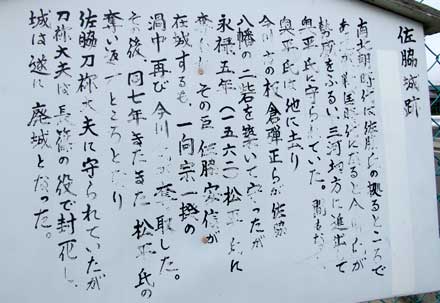 佐脇城跡
南北朝時代は佐脇氏の拠るところで
あったが、戦国時代になると今川氏が
勢力をふるい三河地方に進出して
奥平氏に守られていた。間もなく
奥平氏は他に去り
今川方の板倉弾正らが佐脇
八幡の二砦を築いて守ったが
永禄五年(一五六二)松平氏に
奪われ、その臣佐脇安信が
在城するも、一向宗一揆の
渦中再び今川が奪取した。
その後、同七年またまた松平氏の
奪い返すところとなり
佐脇刀祢大夫に守られていたが
刀祢大夫は長篠の役で討死し、
城は遂に廃城となった。